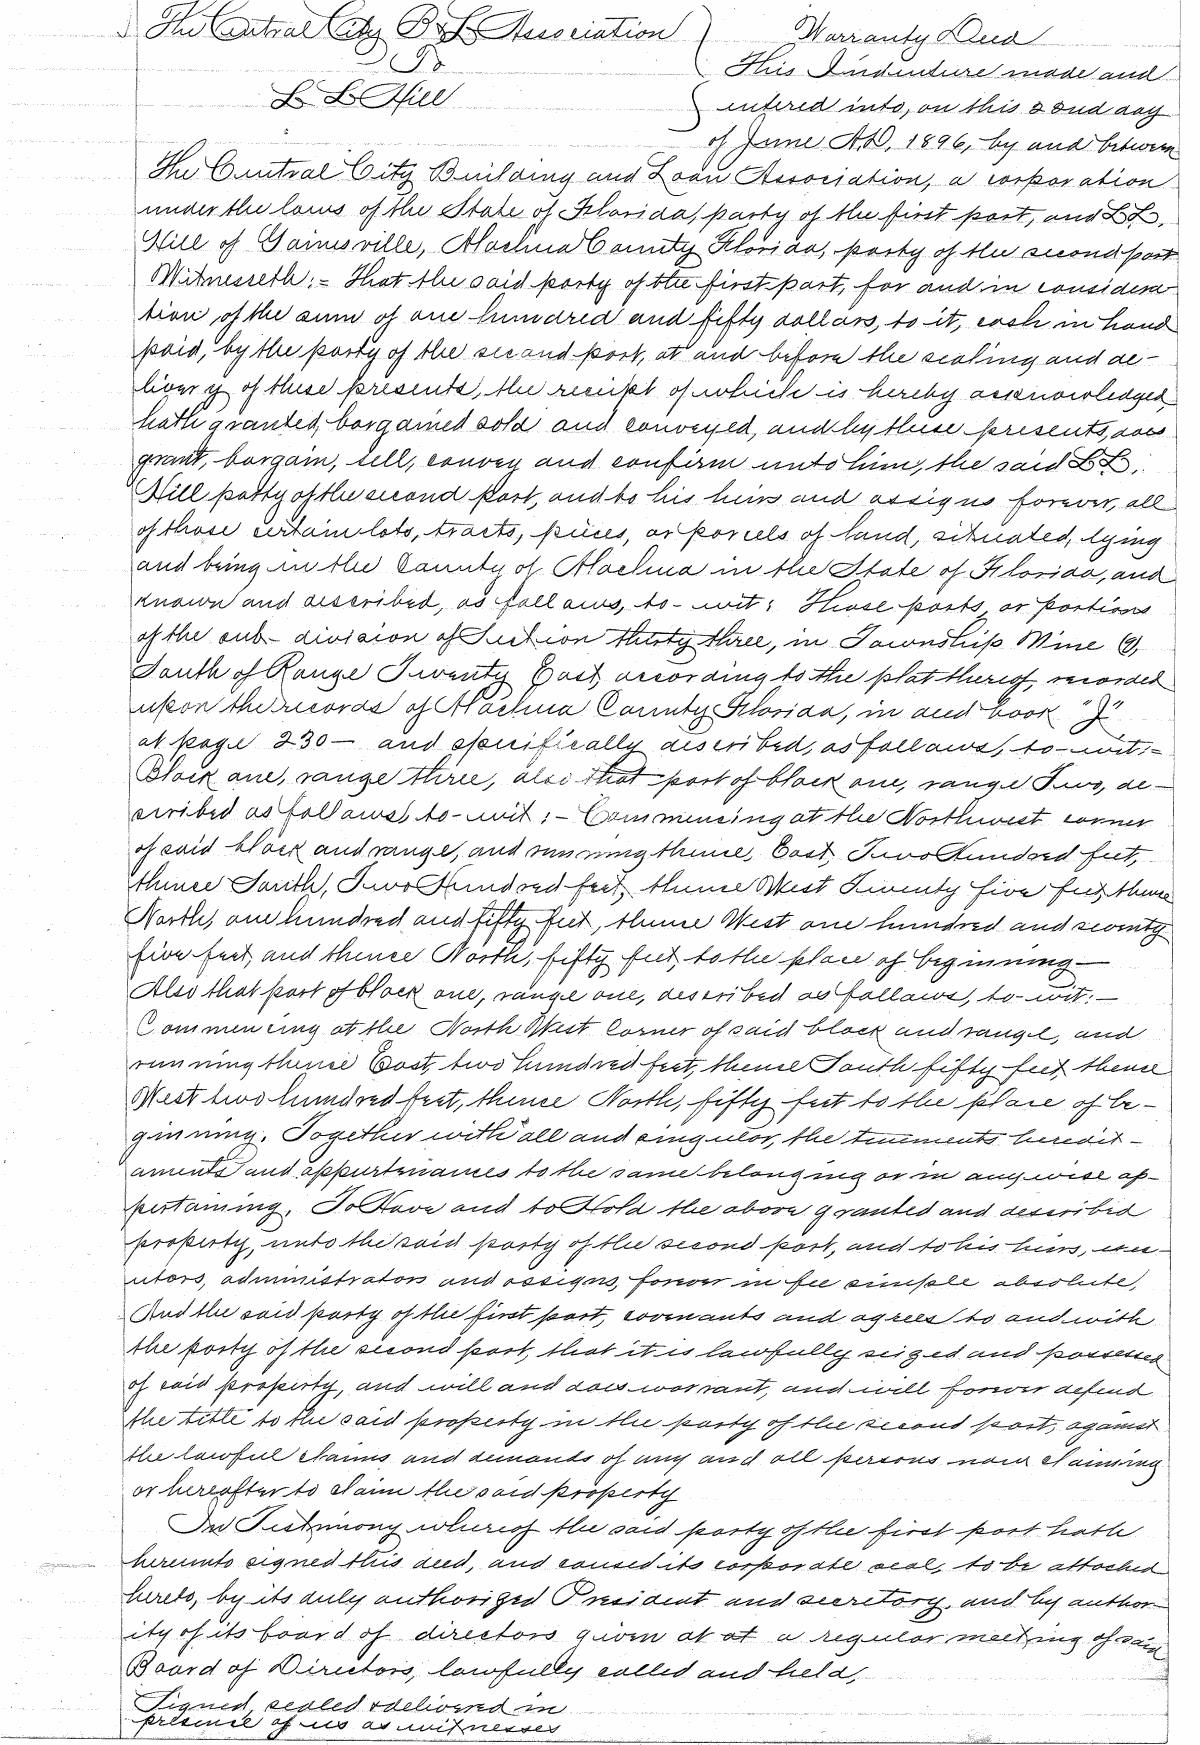 The Central City B & L Association
To
L L Hill
Warranty Deed
This Indenture made and
entered into, on this 22nd day
of June A.D, 1896, by and between
The Central City Building and Loan Association, a corporation
under the laws of the State of Florida, party of the first part, and L L.
Hill of Gainesville, Alachua County Florida, party of the second part
Witnesseth:- That the said party of the first part, for and in considera
tion of the sum of one hundred and fifty dollars, to it, cash in hand
paid, by the party of the second part, at and before the sealing and de-
livery of these presents, the receipt of which is hereby acknowledged,
hath granted, bargained sold and conveyed, and by these presents, does
grant, bargain, sell, convey and confirm unto him, the said L L.
Hill patty of the second part, and to his heirs and assigns forever, all
of those certain lots, tracts, pieces, or parcels of land, situated, lying
and being in the County of Alachua in the State of Florida, and
known and described, as follows, to-wit: Those parts, or portions
of the sub-division of Section thirty three, in Township Nine (9),
South of Range Twenty East, according to the plat thereof, recorded
upon the records of Alachua County Florida, in deed book "J"
at page 230- and specifically described, as follows, to-wit:-
Block one, range three, also that part of block one, range Two, de-
scribed as follows, to-wit:- Commencing at the Northwest corner
of said block and range, and running thence, East, Two Hundred feet,
thence South, Two Hundred feet, thence West Twenty five feet, thence
North, one hundred and fifty feet, thence West one hundred and seventy
five feet, and thence North, fifty feet, to the place of beginning-
Also that part of block one, range one, described as follows, to-wit:-
Commencing at the North West Corner of said block and range, and
running thence East, two hundred feet, thence South fifty feet, thence
West two hundred feet, thence North, fifty feet to the place of be-
ginning. Together with all and singular, the tenements heredit-
aments and appurtenances to the same belonging or in anywise ap-
pertaining. To Have and to Hold the above granted and described
property, unto the said party of the second part, and to his heirs, exec-
utors, administrators and assigns, forever in fee simple absolute,
And the said party of the first part, covenants and agrees to and with
the party of the second part, that it is lawfully seized and possessed
of said property, and will and does warrant, and will forever defend
the title to the said property in the party of the second part, against
the lawful claims and demands of any and all persons now claiming
or hereafter to claim the said property
In Testimony whereof the said party of the first part hath
hereunto signed this deed, and caused its corporate seal, to be attached
hereto, by its duly authorized President and secretary, and by author-
ity of its board of directors given at at a regular meeting of said
Board of Directors, lawfully called and held,
Signed, sealed & delivered in
presence of us as witnesses